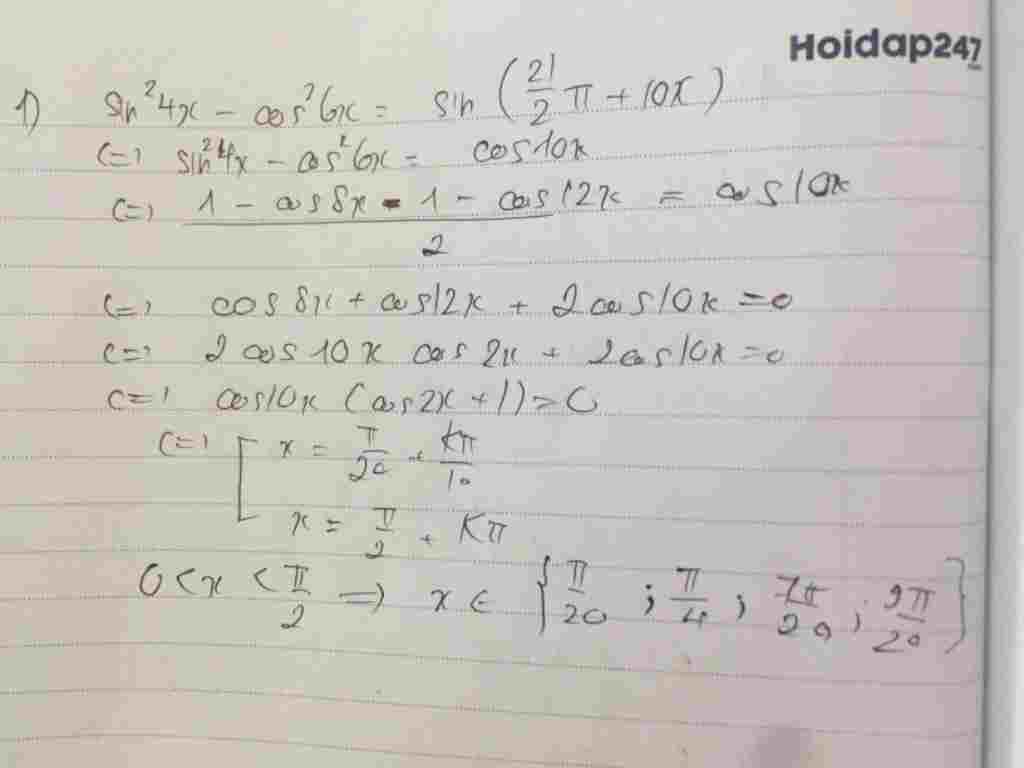 Hoidap247
1) sin²4x - cos²6x = sin (21/2 π + 10x)
(=) sin²4x - cos²6x = cos10x
(=) 1 - cos8x - 1 - cos12x / 2 = cos10x
(=) cos8x + cos12x + 2cos10x = 0
(=) 2cos10x cos2x + 2cos10x = 0
(=) cos10x (cos2x + 1) = 0
(=) [ x = π/20 + kπ/10
x = π/2 + kπ
0 < x < π/2 => x ∈ { π/20 ; π/4 ; 7π/20 ; 9π/20 }